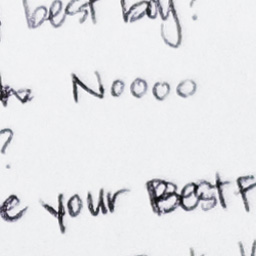 best boy?
Noooo
?
e your BestF